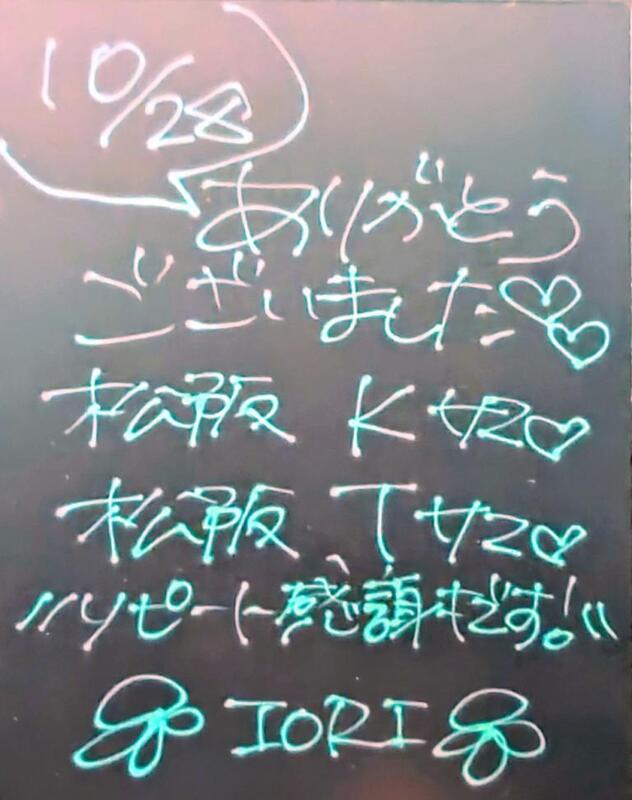 10/28
ありがとう
ございました♡♡
松阪 Kサマ♡
松阪 Tサマ♡
〃リピート感謝です!〃
IORI